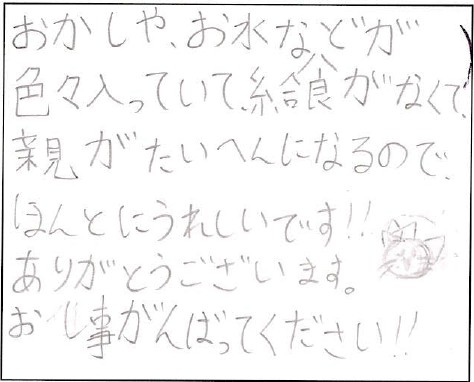 おかしや、お水などが
色々入っていて、給食がなくて、
親がたいへんになるので、
ほんとにうれしいです!!
ありがとうございます。
おし事がんばってください!!